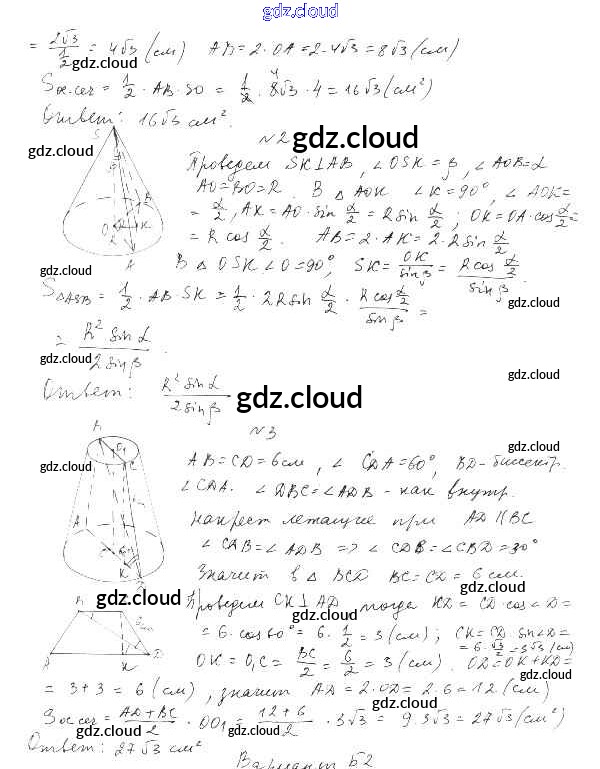 gdz.cloud
= 2√3 / 1/2 = 4√3 (см)  AB = 2·OA = 2·4√3 = 8√3 (см)
gdz.cloud
Sос.сеч = 1/2 · AB · SO = 1/2 · 8√3 · 4 = 16√3 (см²)
4
Ответ: 16√3 см².
N2
gdz.cloud
S
gdz.cloud
Проведем SK⊥AB, ∠OSK = β, ∠AOB = α
AO = BO = R. В △ AOK ∠K = 90°, ∠AOK =
= α/2, AK = AO · sin α/2 = R sin α/2; OK = OA · cos α/2 =
= R cos α/2. AB = 2 · AK = 2 · R sin α/2
gdz.cloud
В △ OSK ∠O = 90°, SK = OK / sin β = R cos α/2 / sin β.
gdz.cloud
S△ASB = 1/2 · AB · SK = 1/2 · 2R sin α/2 · R cos α/2 / sin β =
gdz.cloud
= R² sin α / 2 sin β.
gdz.cloud
gdz.cloud
Ответ: R² sin α / 2 sin β
gdz.cloud
N3
gdz.cloud
AB = CD = 6 см, ∠CDA = 60°, BD - биссектр.
gdz.cloud
∠CDA. ∠DBC = ∠ADB - как внутр.
накрест лежащие при AD ∥ BC
∠CDB = ∠ADB => ∠CDB = ∠CBD = 30°
Значит в △ BCD BC = CD = 6 см.
gdz.cloud
gdz.cloud
Проведем CK ⊥ AD тогда KD = CD · cos ∠D =
gdz.cloud
= 6 · cos 60° = 6 · 1/2 = 3 (см); CK = CD · sin ∠D =
= 6 · √3/2 = 3√3 (см)
OK = O₁C = BC/2 = 6/2 = 3 (см). OD = OK + KD =
gdz.cloud
= 3 + 3 = 6 (см), значит AD = 2·OD = 2·6 = 12 (см)
Sос.сеч = AD + BC / 2 · OO₁ = 12 + 6 / 2 · 3√3 = 9·3√3 = 27√3 (см²)
gdz.cloud
gdz.cloud
gdz.cloud
Ответ: 27√3 см²
Вариант Б2